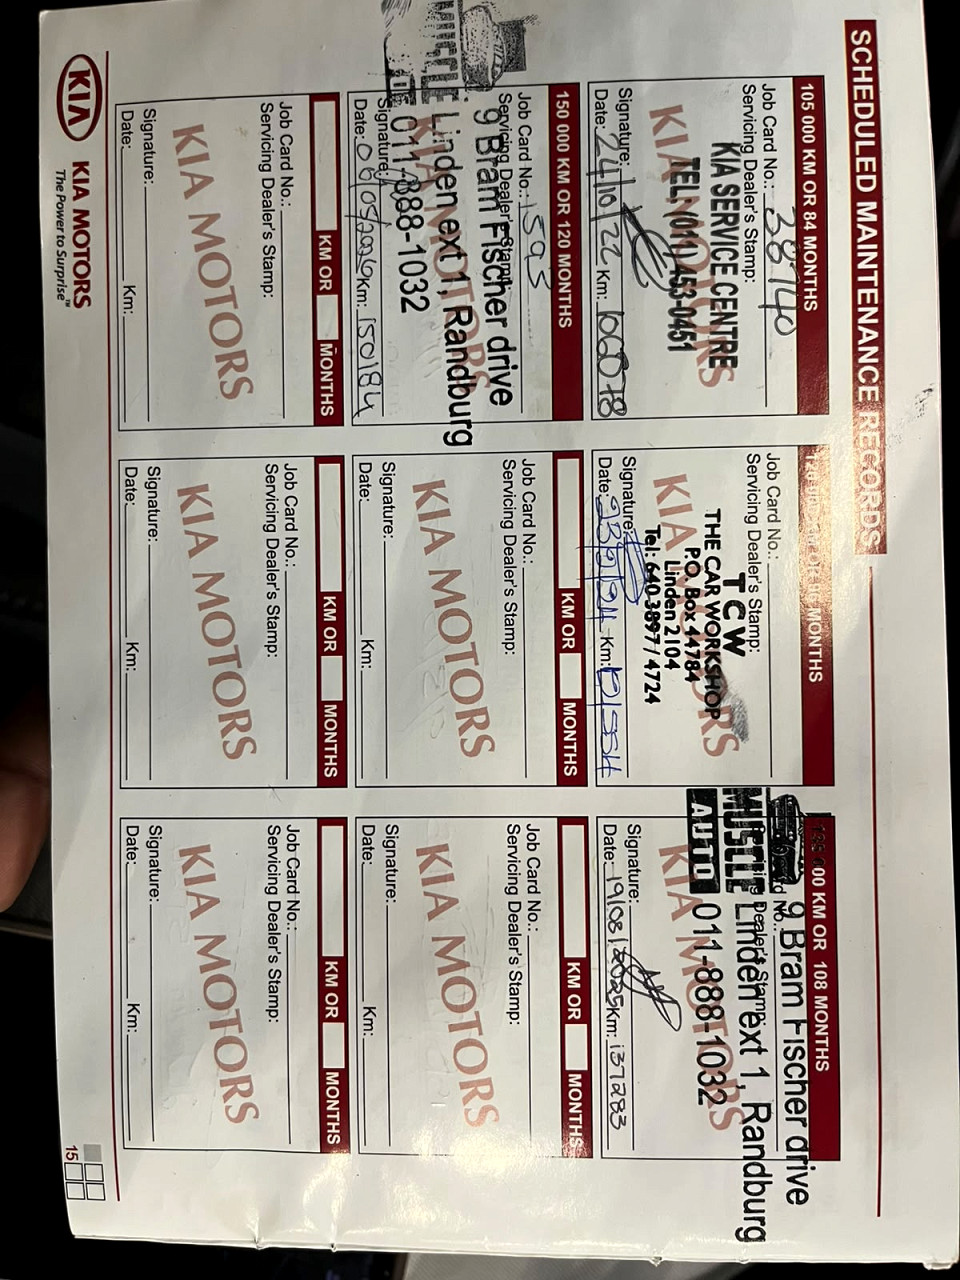 SCHEDULED MAINTENANCE RECORDS
105 000 KM OR 84 MONTHS
Job Card No.: 38740
Servicing Dealer's Stamp:
KIA SERVICE CENTRE
TEL: (011) 453-0451
KIA MOTORS
Signature:
Date: 24/10/22 Km: 106078
MONTHS
Job Card No.:
Servicing Dealer's Stamp:
TCW
THE CAR WORKSHOP
P.O. Box 44784
Linden 2104
Tel: 640-3897 / 4724
KIA MOTORS
Signature:
Date: Km:
000 KM OR 108 MONTHS
9 Bram Fischer drive
MUSCLE Linden ext 1, Randburg
AUTO 011-888-1032
KIA MOTORS
Signature:
Date: 19/08/2025 Km: 137283
150 000 KM OR 120 MONTHS
Job Card No.: 1593
Servicing Dealer's Stamp:
9 Bram Fischer drive
MUSCLE Linden ext 1, Randburg
011-888-1032
KIA MOTORS
Signature:
Date: 08/05/2026 Km: 150184
KM OR MONTHS
Job Card No.:
Servicing Dealer's Stamp:
KIA MOTORS
Signature:
Date: Km:
KM OR MONTHS
Job Card No.:
Servicing Dealer's Stamp:
KIA MOTORS
Signature:
Date: Km:
KM OR MONTHS
Job Card No.:
Servicing Dealer's Stamp:
KIA MOTORS
Signature:
Date: Km:
KM OR MONTHS
Job Card No.:
Servicing Dealer's Stamp:
KIA MOTORS
Signature:
Date: Km:
KM OR MONTHS
Job Card No.:
Servicing Dealer's Stamp:
KIA MOTORS
Signature:
Date: Km:
KIA KIA MOTORS
The Power to Surprise™
15